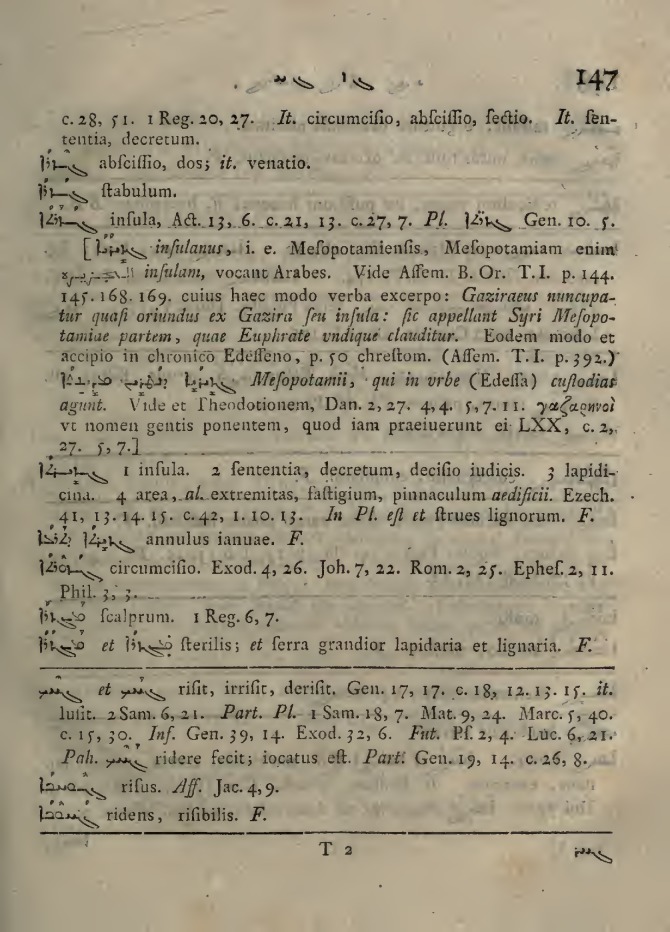 147
c. 28, 51. 1 Reg. 20, 27. It. circumciſio, abſciſſio, ſectio. It. ſen-
tentia, decretum.
ܓܙܪܐ abſciſſio, dos; it. venatio.
ܓܙܪܐ ſtabulum.
ܓܙܪܬܐ inſula, Act. 13, 6. c. 21, 13. c. 27, 7. Pl. ܓܙܪܬܐ Gen. 10. 5.
[ inſulanus, i. e. Meſopotamienſis, Meſopotamiam enim
inſulam, vocant Arabes. Vide Aſſem. B. Or. T. I. p. 144.
145. 168. 169. cuius haec modo verba excerpo: Gaziraeus nuncupa-
tur quaſi oriundus ex Gazira ſeu inſula: ſic appellant Syri Meſopo-
tamiae partem, quae Euphrate vndique clauditur. Eodem modo et
accipio in chronico Edeſſeno, p. 50 chreſtom. (Aſſem. T. I. p. 392.)
Meſopotamii, qui in vrbe (Edeſſa) cuſtodias
agunt. Vide et Theodotionem, Dan. 2, 27. 4, 4. 5, 7. 11. γαζαρηνοὶ
vt nomen gentis ponentem, quod iam praeiuerunt ei LXX, c. 2,
27. 5, 7.]
ܓܙܝܪܬܐ 1 inſula. 2 ſententia, decretum, deciſio iudicis. 3 lapidi-
cina. 4 area, al. extremitas, faſtigium, pinnaculum aedificii. Ezech.
41, 13. 14. 15. c. 42, 1. 10. 13. In Pl. eſt et ſtrues lignorum. F.
annulus ianuae. F.
ܓܙܘܪܬܐ circumciſio. Exod. 4, 26. Joh. 7, 22. Rom. 2, 25. Epheſ. 2, 11.
Phil. 3, 3.
ܡܓܙܪܐ ſcalprum. 1 Reg. 6, 7.
et ſterilis; et ſerra grandior lapidaria et lignaria. F.
ܓܚܟ et ܓܚܟ riſit, irriſit, deriſit. Gen. 17, 17. c. 18, 12. 13. 15. it.
luſit. 2 Sam. 6, 21. Part. Pl. 1 Sam. 18, 7. Mat. 9, 24. Marc. 5, 40.
c. 15, 30. Inf. Gen. 39, 14. Exod. 32, 6. Fut. Pſ. 2, 4. Luc. 6, 21.
Pah. ܓܚܟ ridere fecit; iocatus eſt. Part. Gen. 19, 14. c. 26, 8.
riſus. Aff. Jac. 4, 9.
ridens, riſibilis. F.
T 2
ܓܚܟ